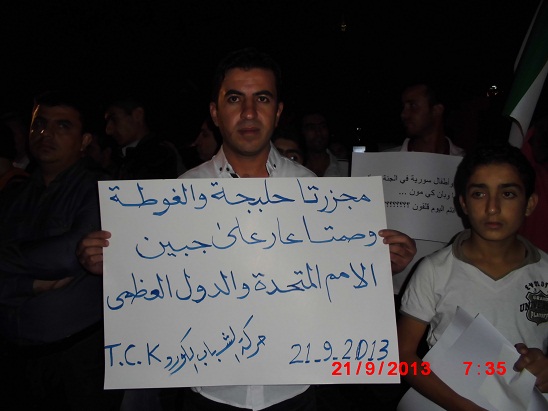 مجزرتا حلبجة والغوطة
وصمتا عار على جبين
الامم المتحدة والدول العظمى
حركة الشباب الكورد T.C.K
21-9-2013
أطفال سورية في الجنة
بان كي مون ...
اليوم قلقون ؟؟؟؟؟؟؟؟
21/9/2013 7:35